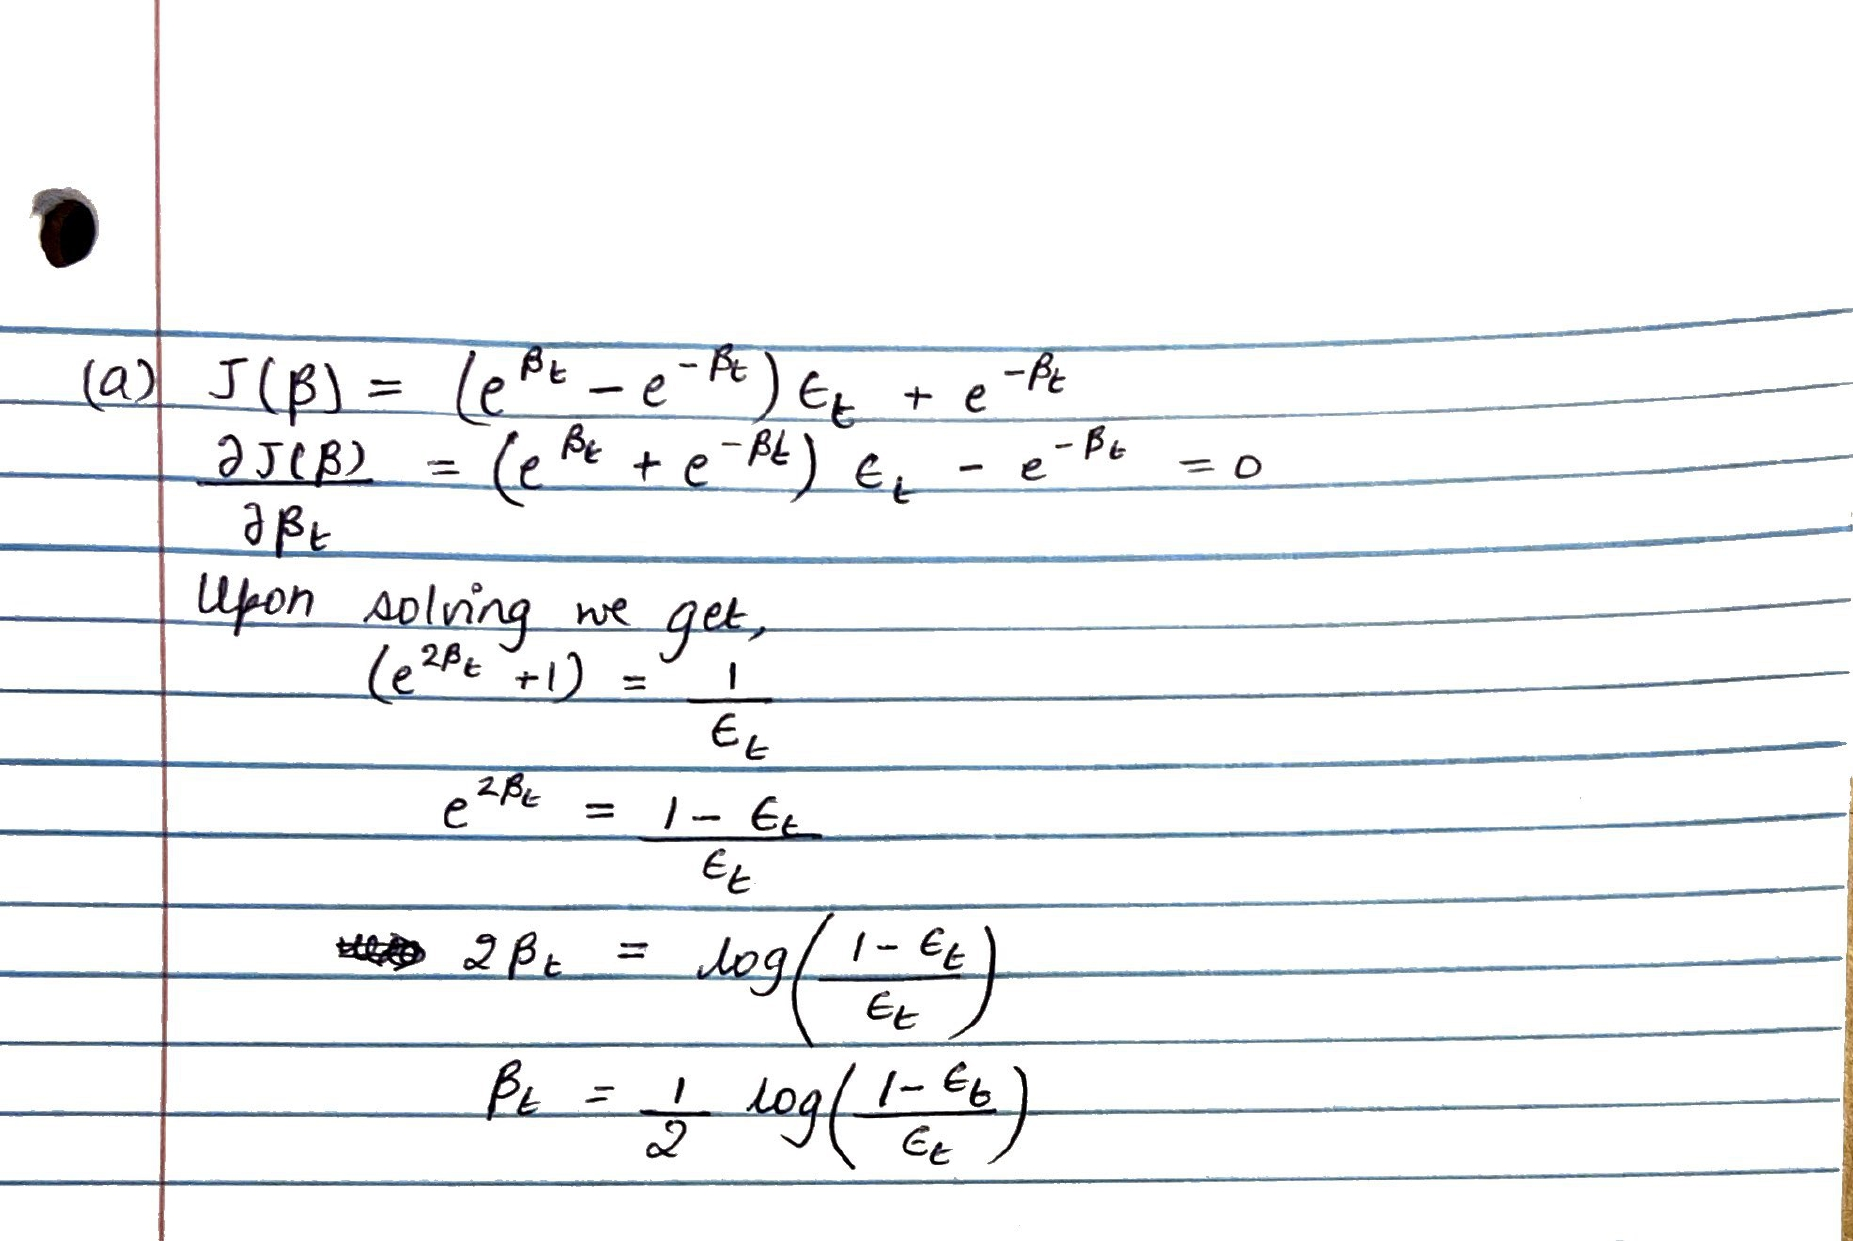 (a) J(β) = (e^{βt} − e^{−βt}) ϵ_t + e^{−βt}
∂J(β)/∂βt = (e^{βt} + e^{−βt}) ϵ_t − e^{−βt} = 0
Upon solving we get,
(e^{2βt} + 1) = 1/ϵ_t
e^{2βt} = (1 − ϵ_t)/ϵ_t
2βt = log((1 − ϵ_t)/ϵ_t)
βt = 1/2 log((1 − ϵ_t)/ϵ_t)